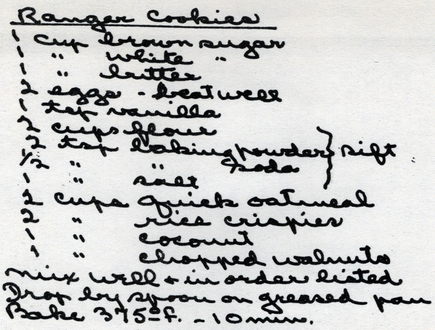 Ranger Cookies
1 cup brown sugar
1 " white "
1 " butter
2 eggs - beat well
1 tsp vanilla
2 cups flour
2 tsp baking powder } sift
1/2 " " soda
1 " salt
2 cups quick oatmeal
2 " rice crispies
1 " coconut
1 " chopped walnuts
Mix well + in order listed
Drop by spoon on greased pan
Bake 375° f. - 10 min.